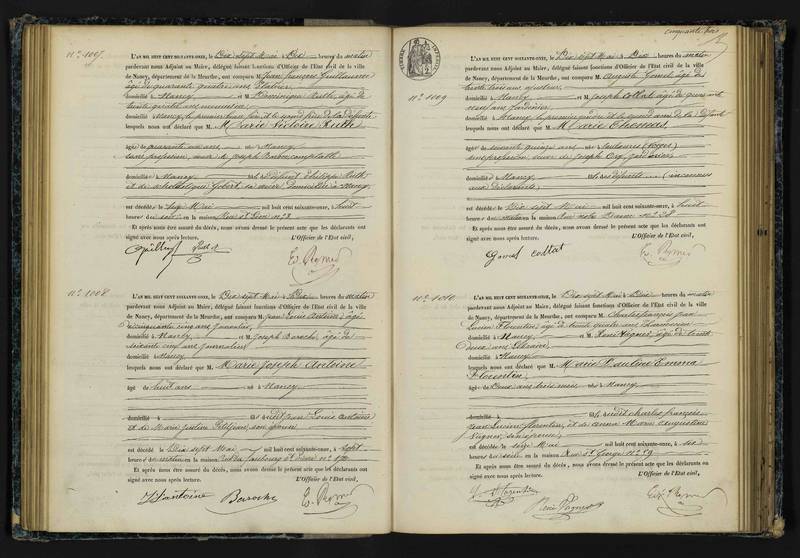 n° 1007
L'AN MIL HUIT CENT SOIXANTE-ONZE, le Dix sept Mai à Dix heures du matin
pardevant nous Adjoint au Maire, délégué faisant fonctions d'Officier de l'Etat civil de la ville
de Nancy, département de la Meurthe, ont comparu M. Jean François Guillaume
âgé de quarante quatre ans
domicilié à Nancy et M. Dominique Ruth, âgé de
trente quatre ans menuisier
domicilié à Nancy, le premier beau fils, et le second frère de la défunte
lesquels nous ont déclaré que M. Marie Victoire Ruth
âgée de quarante ans née à Nancy
sans profession, veuve de Joseph Barbe comptable
domiciliée à Nancy fille de Défunt Philippe Ruth
et de scholastique Gobert, sa veuve domiciliée à Nancy
est décédée le Mai mil huit cent soixante-onze, à huit
heures du soir en la maison Rue St Léon n° 3
Et après nous être assuré du décès, nous avons dressé le présent acte que les déclarants ont
signé avec nous après lecture. L'Officier de l'Etat civil,
n° 1008
L'AN MIL HUIT CENT SOIXANTE-ONZE, le Dix sept Mai à Dix heures du matin
pardevant nous Adjoint au Maire, délégué faisant fonctions d'Officier de l'Etat civil de la ville
de Nancy, département de la Meurthe, ont comparu M. Jean Louis Antoine, âgé
de cinquante cinq ans journalier
domicilié à Nancy et M. Joseph Baroche, âgé de
soixante cinq ans journalier
domicilié à Nancy
lesquels nous ont déclaré que M. Marie Joseph Antoine
âgé de huit ans né à Nancy
domicilié à fils de dit Jean Louis Antoine
et de Marie Justine Petitjean, son épouse
est décédé le Dix sept Mai mil huit cent soixante-onze, à sept
heures du matin en la maison rue du faubourg St Pierre n°
Et après nous être assuré du décès, nous avons dressé le présent acte que les déclarants ont
signé avec nous après lecture. L'Officier de l'Etat civil,
Antoine Baroche
cinquante trois
n° 1009
L'AN MIL HUIT CENT SOIXANTE-ONZE, le Dix sept Mai à Dix heures du matin
pardevant nous Adjoint au Maire, délégué faisant fonctions d'Officier de l'Etat civil de la ville
de Nancy, département de la Meurthe, ont comparu M. Auguste âgé de
trente trois ans
domicilié à Nancy et M. Joseph Collat, âgé de quarante
neuf ans Jardinier
domicilié à Nancy, le premier gendre et le second ami de la défunte
lesquels nous ont déclaré que M. Marie Thomas
âgée de soixante quinze ans née à (Vosges)
sans profession veuve de Joseph jardinier
domiciliée à Nancy fille de défunts (inconnus
aux déclarants)
est décédée le Dix sept Mai mil huit cent soixante-onze, à huit
heures du matin en la maison Rue notre Dame n° 38
Et après nous être assuré du décès, nous avons dressé le présent acte que les déclarants ont
signé avec nous après lecture. L'Officier de l'Etat civil,
collat
n° 1010
L'AN MIL HUIT CENT SOIXANTE-ONZE, le Dix sept Mai à Dix heures du matin
pardevant nous Adjoint au Maire, délégué faisant fonctions d'Officier de l'Etat civil de la ville
de Nancy, département de la Meurthe, ont comparu M. Charles François Jean
Lucien Florentin, âgé de trente quatre ans Pharmacien
domicilié à Nancy et M. René Wagner, âgé de trente
deux ans Libraire
domicilié à Nancy
lesquels nous ont déclaré que M. Marie Pauline Emma
Florentin
âgée de Deux ans trois mois née à Nancy
domiciliée à fille de dit Charles François
Jean Lucien Florentin, et de Anna Marie Augustine
Wagner, son épouse
est décédée le seize Mai mil huit cent soixante-onze, à six
heures du soir en la maison Rue St Georges n° 59
Et après nous être assuré du décès, nous avons dressé le présent acte que les déclarants ont
signé avec nous après lecture. L'Officier de l'Etat civil,
Florentin
René Wagner